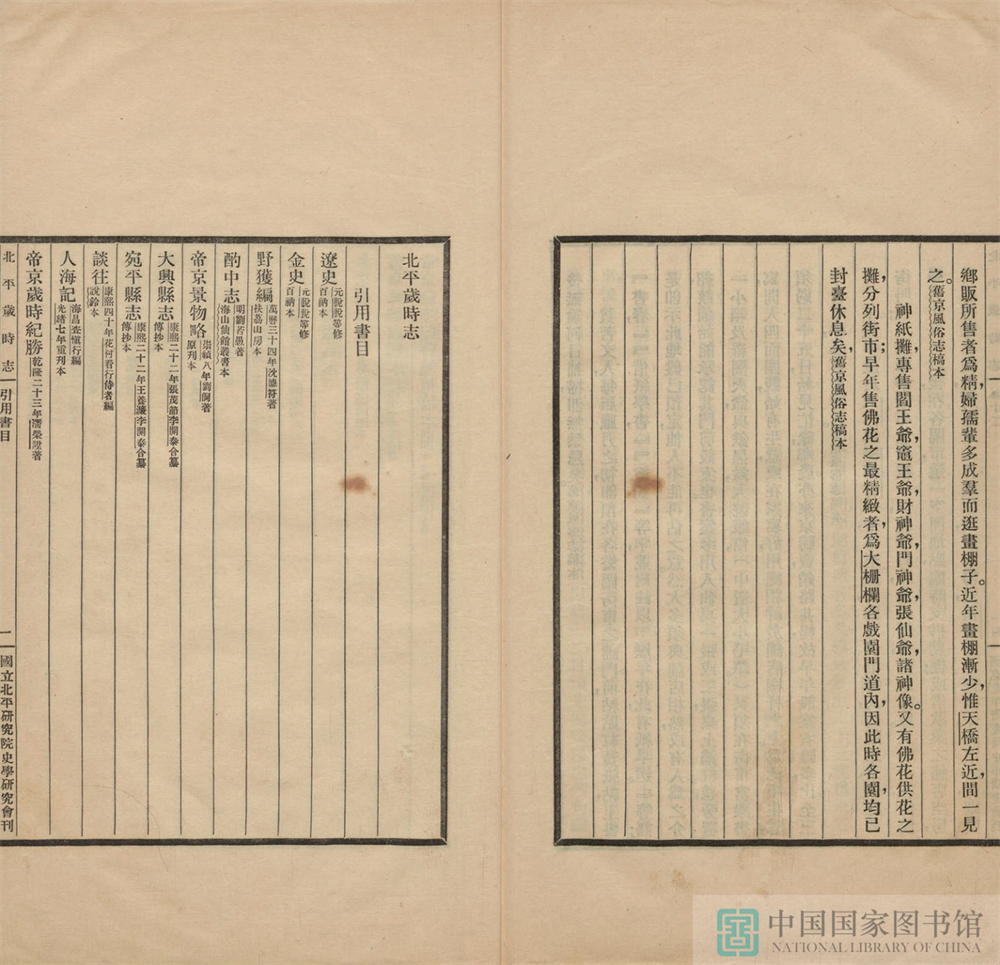 鄉販所售者爲精，婦孺輩多成羣而逛畫棚子。近年畫棚漸少，惟天橋左近，間一見
之。舊京風俗志稿本
神紙攤專售閻王爺，竈王爺，財神爺，門神爺，張仙爺，諸神像。又有佛花供花之
攤，分列街市；早年售佛花之最精緻者，爲大柵欄各戲園門道內，因此時各園，均已
封臺休息矣，舊京風俗志稿本
北平歲時志
引用書目
遼史 元脫脫等修 百衲本
金史 元脫脫等修 百衲本
野獲編 萬曆三十四年沈德符著 扶荔山房本
酌中志 明劉若愚著 海山仙館叢書本
帝京景物略 崇禎八年劉侗著 原刊本
大興縣志 康熙二十二年張茂節李開泰合纂 傳抄本
宛平縣志 康熙二十二年王養濂李開泰合纂 傳抄本
談往 康熙四十年花村看行侍者編 說鈴本
人海記 海昌查愼行編 光緒七年重刊本
帝京歲時紀勝 乾隆二十三年潘榮陛著
北平歲時志 引用書目 一 國立北平研究院史學研究會刊
中国国家图书馆
NATIONAL LIBRARY OF CHINA